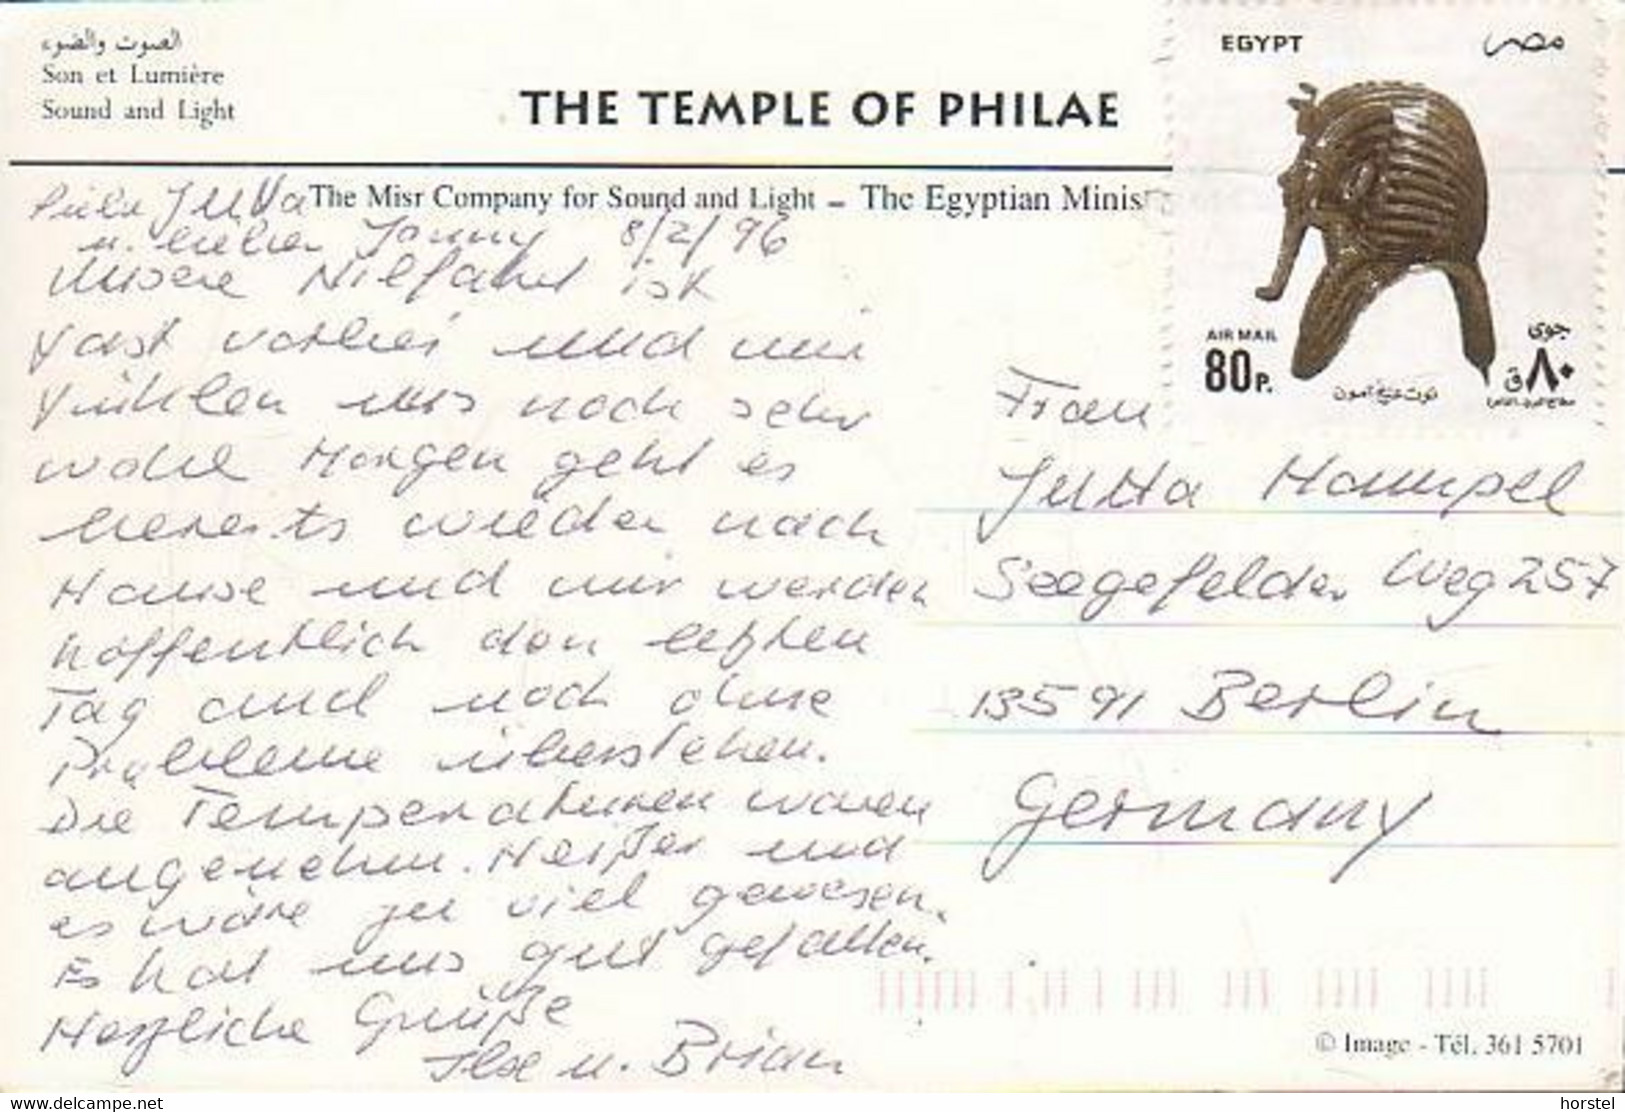 الصوت والضوء
Son et Lumière
Sound and Light
THE TEMPLE OF PHILAE
EGYPT مصر
The Misr Company for Sound and Light – The Egyptian Minist
AIR MAIL
80 P.
جوى
٨٠ ق
توت عنخ آمون
Jutta
u. lieber 8/2/96
Unsere Nilfahrt ist
fast vorbei und wir
fühlen uns noch sehr
wohl Morgen geht es
bereits wieder nach
Hause und wir werden
hoffentlich den letzten
Tag auch noch ohne
Probleme überstehen.
Die Temperaturen waren
angenehm. Heißer und
es wäre zu viel gewesen.
Es hat uns gut gefallen.
Herzliche Grüße
Ilse u. Brian
Frau
Jutta Hampel
Seegefelder Weg 257
13591 Berlin
Germany
© Image - Tél. 361 5701
delcampe.net
horstel